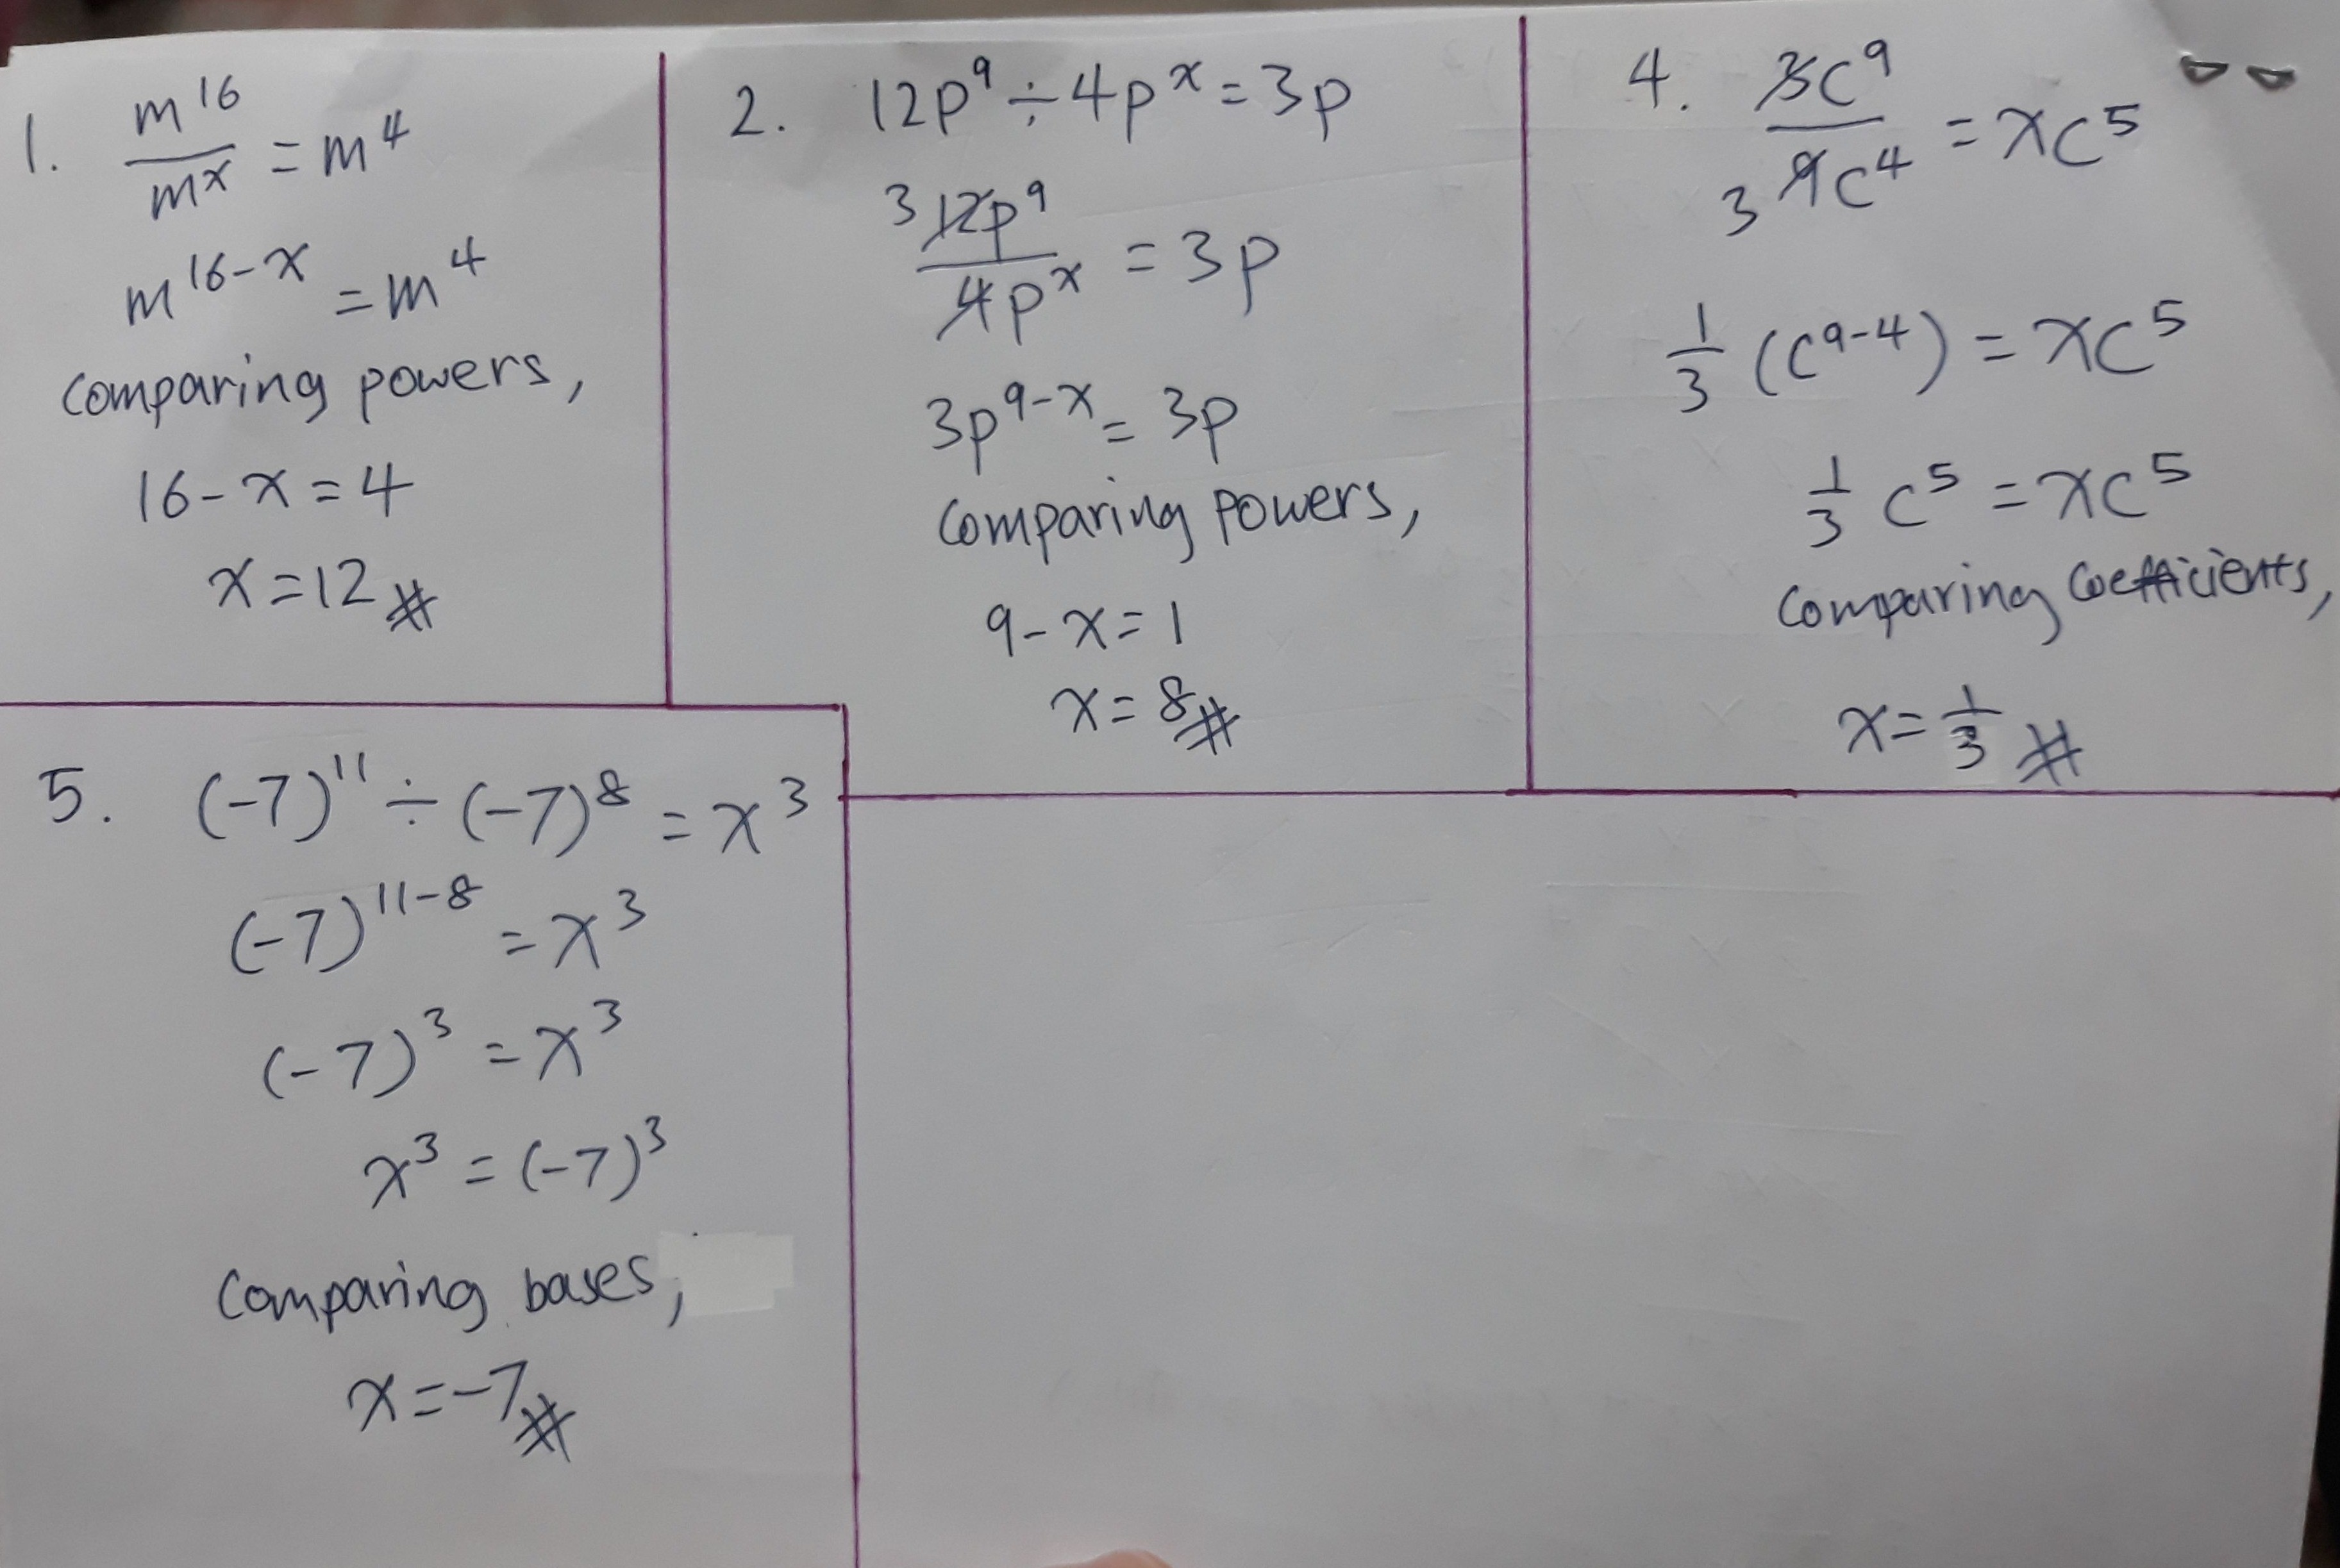 1. m^16 / m^x = m^4
m^16-x = m^4
Comparing powers,
16-x=4
x=12 #
2. 12p^9 ÷ 4p^x = 3p
3 12p^9 / 4p^x = 3p
3p^9-x = 3p
Comparing powers,
9-x=1
x=8 #
4. 3c^9 / 3 9c^4 = xc^5
1/3 (c^9-4) = xc^5
1/3 c^5 = xc^5
Comparing Coefficients,
x=1/3 #
5. (-7)^11 ÷ (-7)^8 = x^3
(-7)^11-8 = x^3
(-7)^3 = x^3
x^3 = (-7)^3
Comparing bases,
x=-7 #